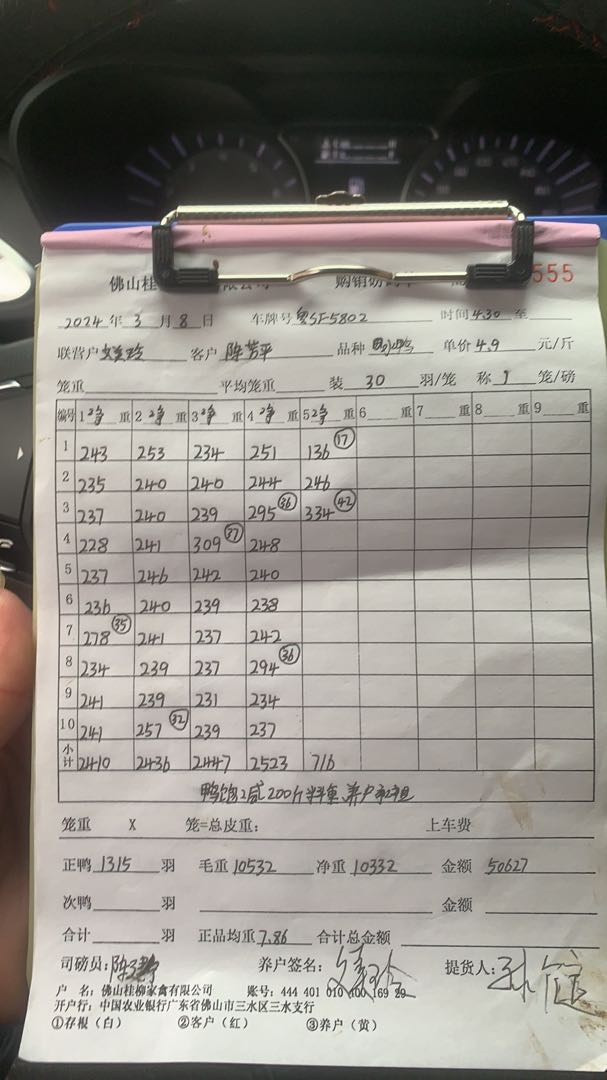 佛山桂 购销 555
2024 年 3 月 8 日 车牌号 粤SF5802 时间 4.30 至
联营户 客户 陈芳平 品种 单价 4.9 元/斤
笼重 平均笼重 装 30 羽/笼 称 1 笼/磅
编号 1 净 重 2 净 重 3 净 重 4 净 重 5 净 重 6 重 7 重 8 重 9 重
1 243 253 234 251 136 (17)
2 235 240 240 244 246
3 237 240 239 295 (36) 334 (42)
4 228 241 309 (37) 248
5 237 246 242 240
6 236 240 239 238
7 278 (35) 241 237 242
8 234 239 237 294 (36)
9 241 239 231 234
10 241 257 (32) 239 237
小计 2410 2436 2447 2523 716
鸭饱 减200斤 养户承担
笼重 X 笼=总皮重: 上车费
正鸭 1315 羽 毛重 10532 净重 10332 金额 50627
次鸭 羽 金额
合计 羽 正品均重 7.86 合计总金额
司磅员: 养户签名: 提货人:
户 名: 佛山桂柳家禽有限公司 账号: 444 401 010 400 169 29
开户行: 中国农业银行广东省佛山市三水区三水支行
①存根（白） ②客户（红） ③养户（黄）